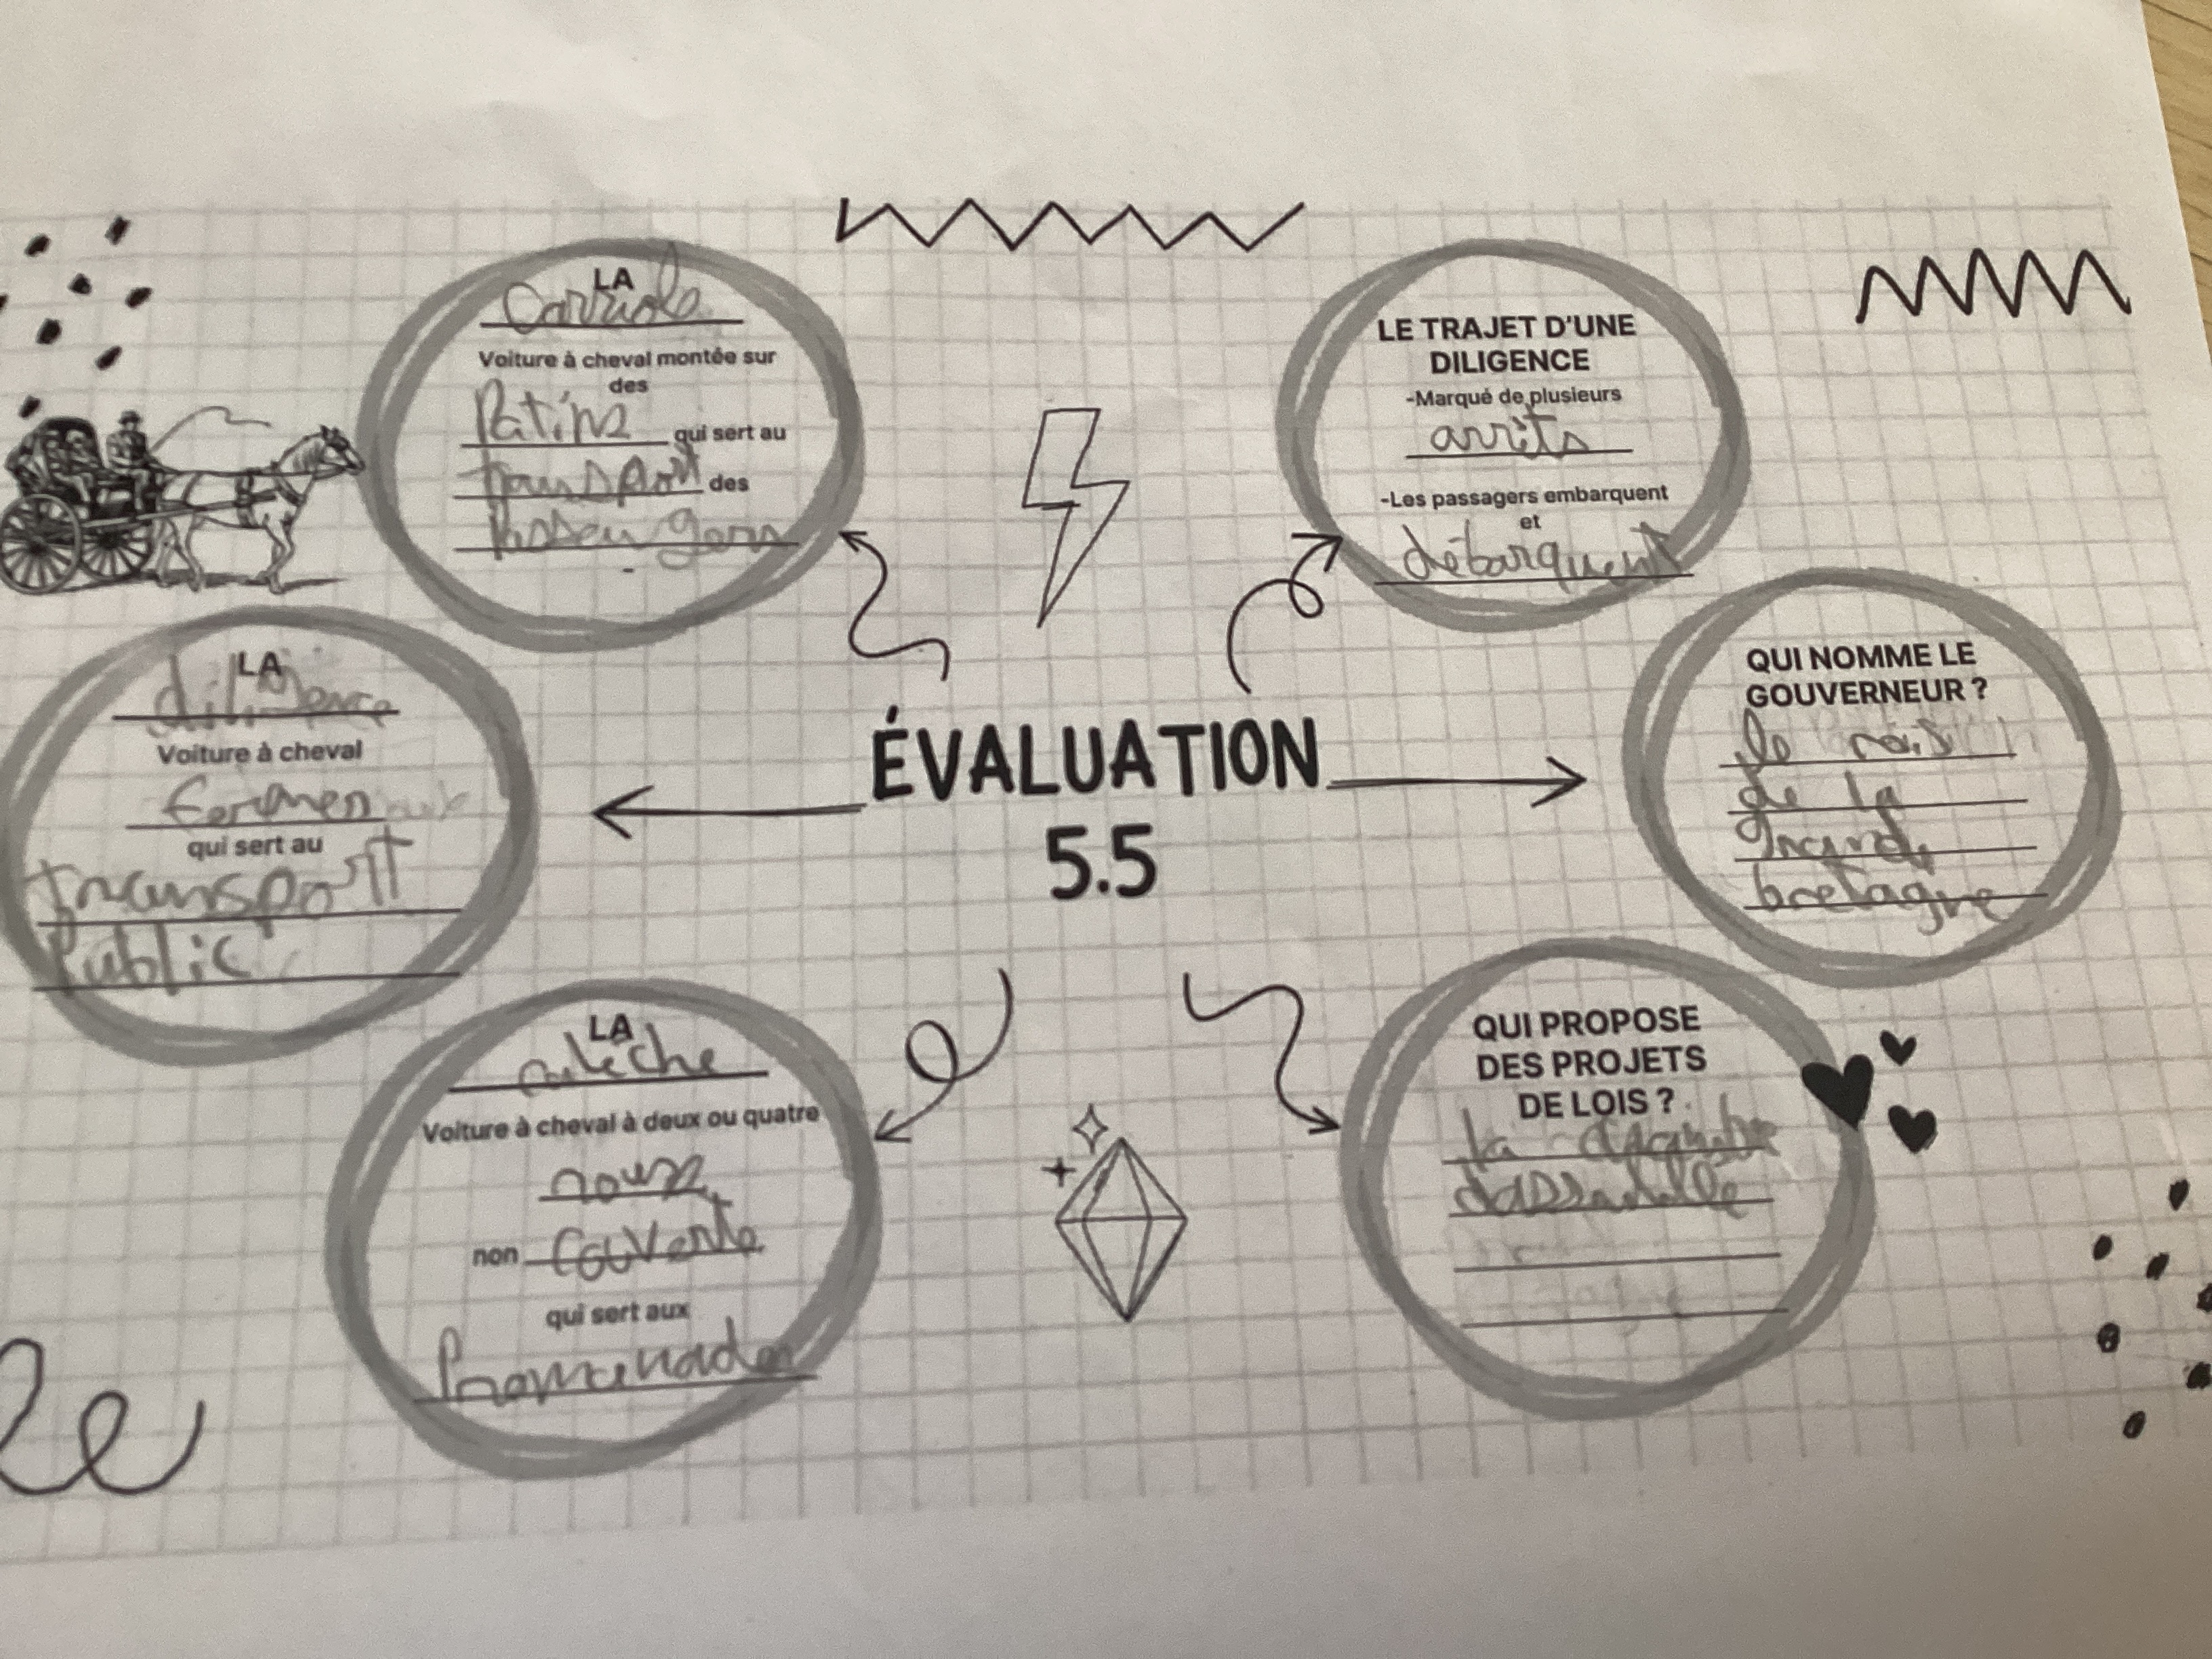 LA
Carriole
Voiture à cheval montée sur
des
Patins qui sert au
transport des
LE TRAJET D'UNE
DILIGENCE
-Marqué de plusieurs
arrêts
-Les passagers embarquent
et
débarquent
LA
diligence
Voiture à cheval
qui sert au
transport
Public
ÉVALUATION
5.5
QUI NOMME LE
GOUVERNEUR ?
le rois
de la
Grande
bretagne
LA
calèche
Voiture à cheval à deux ou quatre
non couverte
qui sert aux
Promenades
QUI PROPOSE
DES PROJETS
DE LOIS ?
la